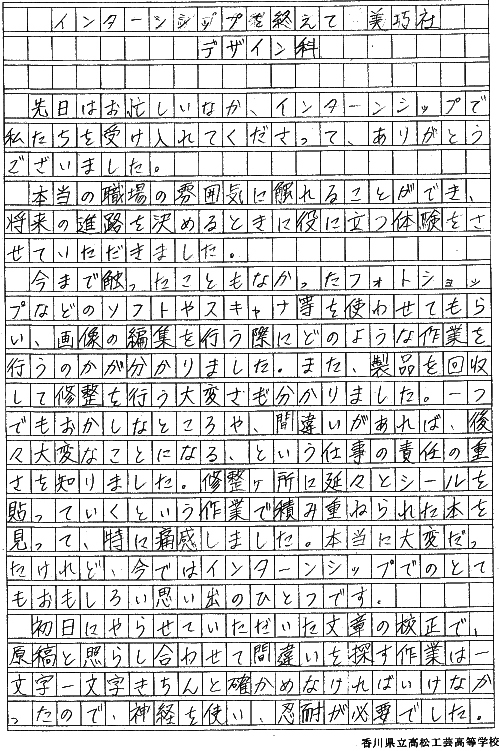 インターンシップを終えて 美巧社
デザイン科
先日はお忙しいなか、インターンシップで
私たちを受け入れてくださって、ありがとう
ございました。
本当の職場の雰囲気に触れることができ、
将来の進路を決めるときに役に立つ体験をさ
せていただきました。
今まで触ったこともなかったフォトショッ
プなどのソフトやスキャナ等を使わせてもら
い、画像の編集を行う際にどのような作業を
行うのかが分かりました。また、製品を回収
して修整を行う大変さも分かりました。一つ
でもおかしなところや、間違いがあれば、後
々大変なことになる、という仕事の責任の重
さを知りました。修整ヶ所に延々とシールを
貼っていくという作業で積み重ねられた本を
見って、特に痛感しました。本当に大変だっ
たけれど、今ではインターンシップでのとて
もおもしろい思い出のひとつです。
初日にやらせていただいた文章の校正で、
原稿と照らし合わせて間違いを探す作業は一
文字一文字きちんと確かめなければいけなか
ったので、神経を使い、忍耐が必要でした。
香川県立高松工芸高等学校